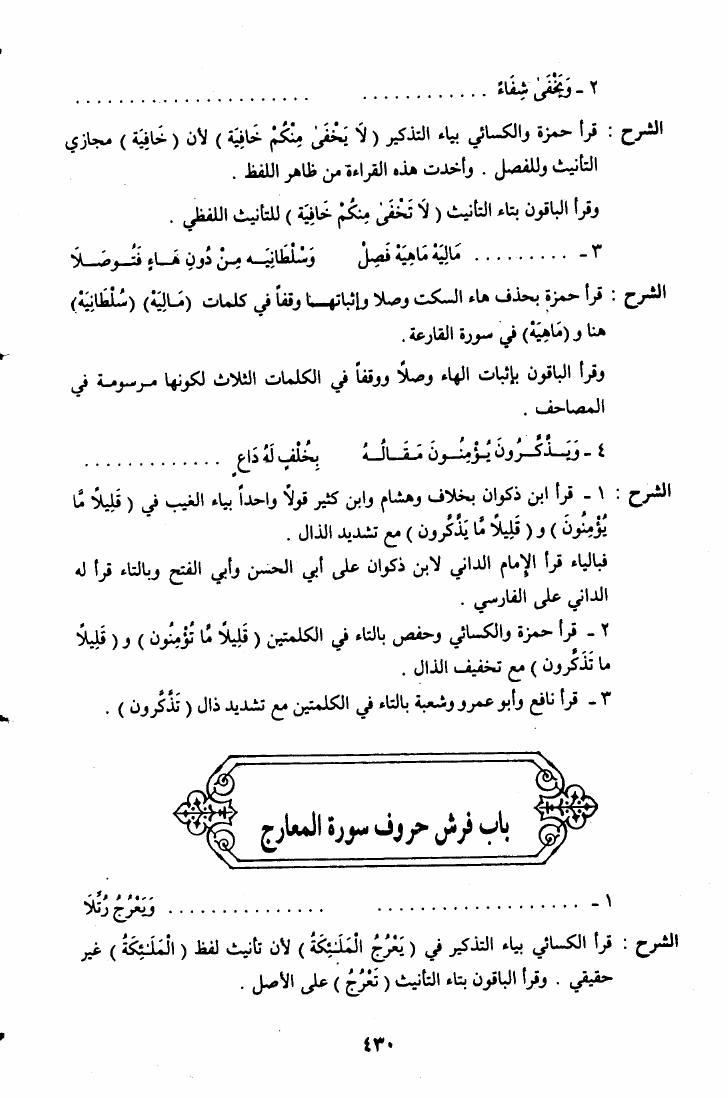 ٢ - وَيَخْفَىٰ شِفَاءً . . . . . . . . . . . . . . . . . . . . . . . . . . . . . . . . . . .
الشرح : قرأ حمزة والكسائي بياء التذكير ( لَا يَخْفَىٰ مِنْكُمْ خَافِيَة ) لأن ( خَافِيَة ) مجازي
التأنيث وللفصل . وأخذت هذه القراءة من ظاهر اللفظ .
وقرأ الباقون بتاء التأنيث ( لَا تَخْفَىٰ مِنكُمْ خَافِيَة ) للتأنيث اللفظي .
٣ - . . . . . . . . . مَالِيَهْ مَاهِيَهْ فَصِلْ وَسُلْطَانِيَــه مِـنْ دُونِ هَــاءٍ فَتُـوصَــلَا
الشرح : قرأ حمزة بحذف هاء السكت وصلا وإثباتهــا وقفاً في كلمات (مَـالِيَهْ) (سُلْطَانِيَهْ)
هنا و (مَاهِيَهْ) في سورة القارعة .
وقرأ الباقون بإثبات الهاء وصلًا ووقفاً في الكلمات الثلاث لكونها مـرسومـة في
المصاحف .
٤ - وَيَــذَّكَّــرُونَ يُـؤْمِنُــونَ مَـقَــالُــهُ بِخُلْفٍ لَهُ دَاعٍ . . . . . . . . . . . . .
الشرح : ١ - قرأ ابن ذكوان بخلاف وهشام وابن كثير قولًا واحداً بياء الغيب في ( قَلِيلًا مَّا
يُؤْمِنُونَ ) و ( قَلِيلًا مَّا يَذَّكَّرون ) مع تشديد الذال .
فبالياء قرأ الإمام الداني لابن ذكوان على أبي الحسن وأبي الفتح وبالتاء قرأ له
الداني على الفارسي .
٢ - قرأ حمزة والكسائي وحفص بالتاء في الكلمتين ( قَلِيلًا مَّا تُؤْمِنُون ) و ( قَلِيلًا
ما تَذَكَّرون ) مع تخفيف الذال .
٣ - قرأ نافع وأبو عمرو وشعبة بالتاء في الكلمتين مع تشديد ذال ( تَذَّكَّرون ) .
باب فرش حروف سورة المعارج
١ - . . . . . . . . . . . . . . . . . . . . . . . . . . . . . . . . . . . وَيَعْرُجُ رُتِّلَا
الشرح : قرأ الكسائي بياء التذكير في ( يَعْرُجُ الْمَلَـٰئِكَةُ ) لأن تأنيث لفظ ( الْمَلَـٰئِكَةُ ) غير
حقيقي . وقرأ الباقون بتاء التأنيث ( تَعْرُجُ ) على الأصل .
٤٣٠